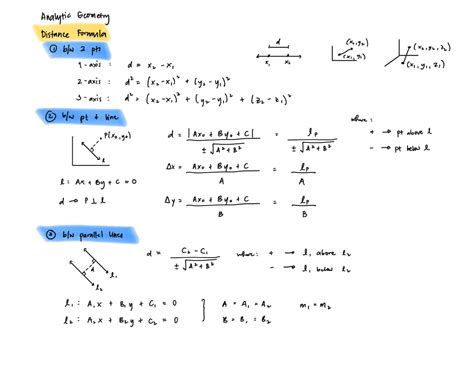 Analytic Geometry
Distance Formula
① b/w 2 pts
1-axis : d = x₂ - x₁
2-axis : d² = (x₂-x₁)² + (y₂-y₁)²
3-axis : d² = (x₂-x₁)² + (y₂-y₁)² + (z₂-z₁)²
d
x₁ x₂
(x₂, y₂)
(x₁, y₁)
(x₂, y₂, z₂)
(x₁, y₁, z₁)
② b/w pt & line
P(x₀, y₀)
l
l : Ax + By + C = 0
d → P ⊥ l
d = |Ax₀ + By₀ + C| / ±√(A² + B²) = lp / ±√(A² + B²)
Δx = Ax₀ + By₀ + C / A = lp / A
Δy = Ax₀ + By₀ + C / B = lp / B
where :
+ → pt above l
- → pt below l
③ b/w parallel lines
d
l₁
l₂
d = C₂ - C₁ / ±√(A² + B²)
where : + → l₁ above l₂
- → l₁ below l₂
l₁ : A₁x + B₁y + C₁ = 0
l₂ : A₂x + B₂y + C₂ = 0
A = A₁ = A₂
B = B₁ = B₂
m₁ = m₂